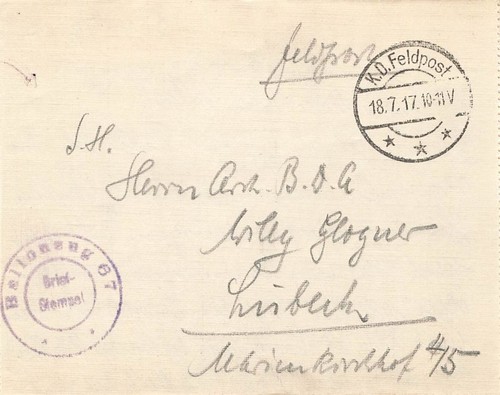 Feldpost
K.D.Feldpost
18.7.17.10-11V
S.H.
Herrn Arch. B.D.A
Willy Glogner
Lübeck
Marienkirchhof 4/5
Ballonzug 67
Brief-
Stempel